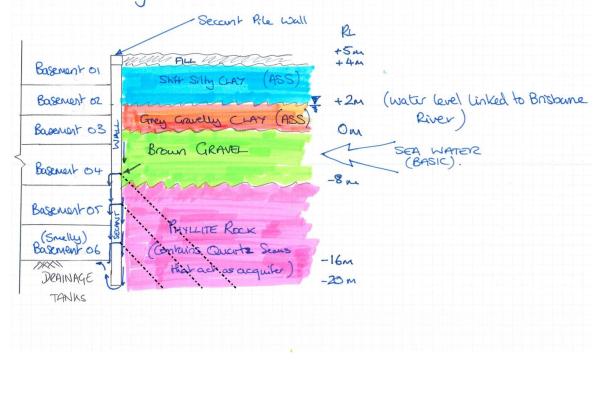 Secant Pile Wall
RL
+5m
+4m
FILL
Basement 01
Stiff Silty CLAY (ASS)
Basement 02
+2m (water level linked to Brisbane
River)
Grey Gravelly CLAY (ASS)
Basement 03
0m
WALL
Brown GRAVEL
SEA WATER
(BASIC).
Basement 04
-8m
Basement 05
SECANT
PHYLLITE ROCK
(Smelly)
Basement 06
(contains Quartz Seams
that act as acquifer)
-16m
-20m
DRAINAGE
TANKS